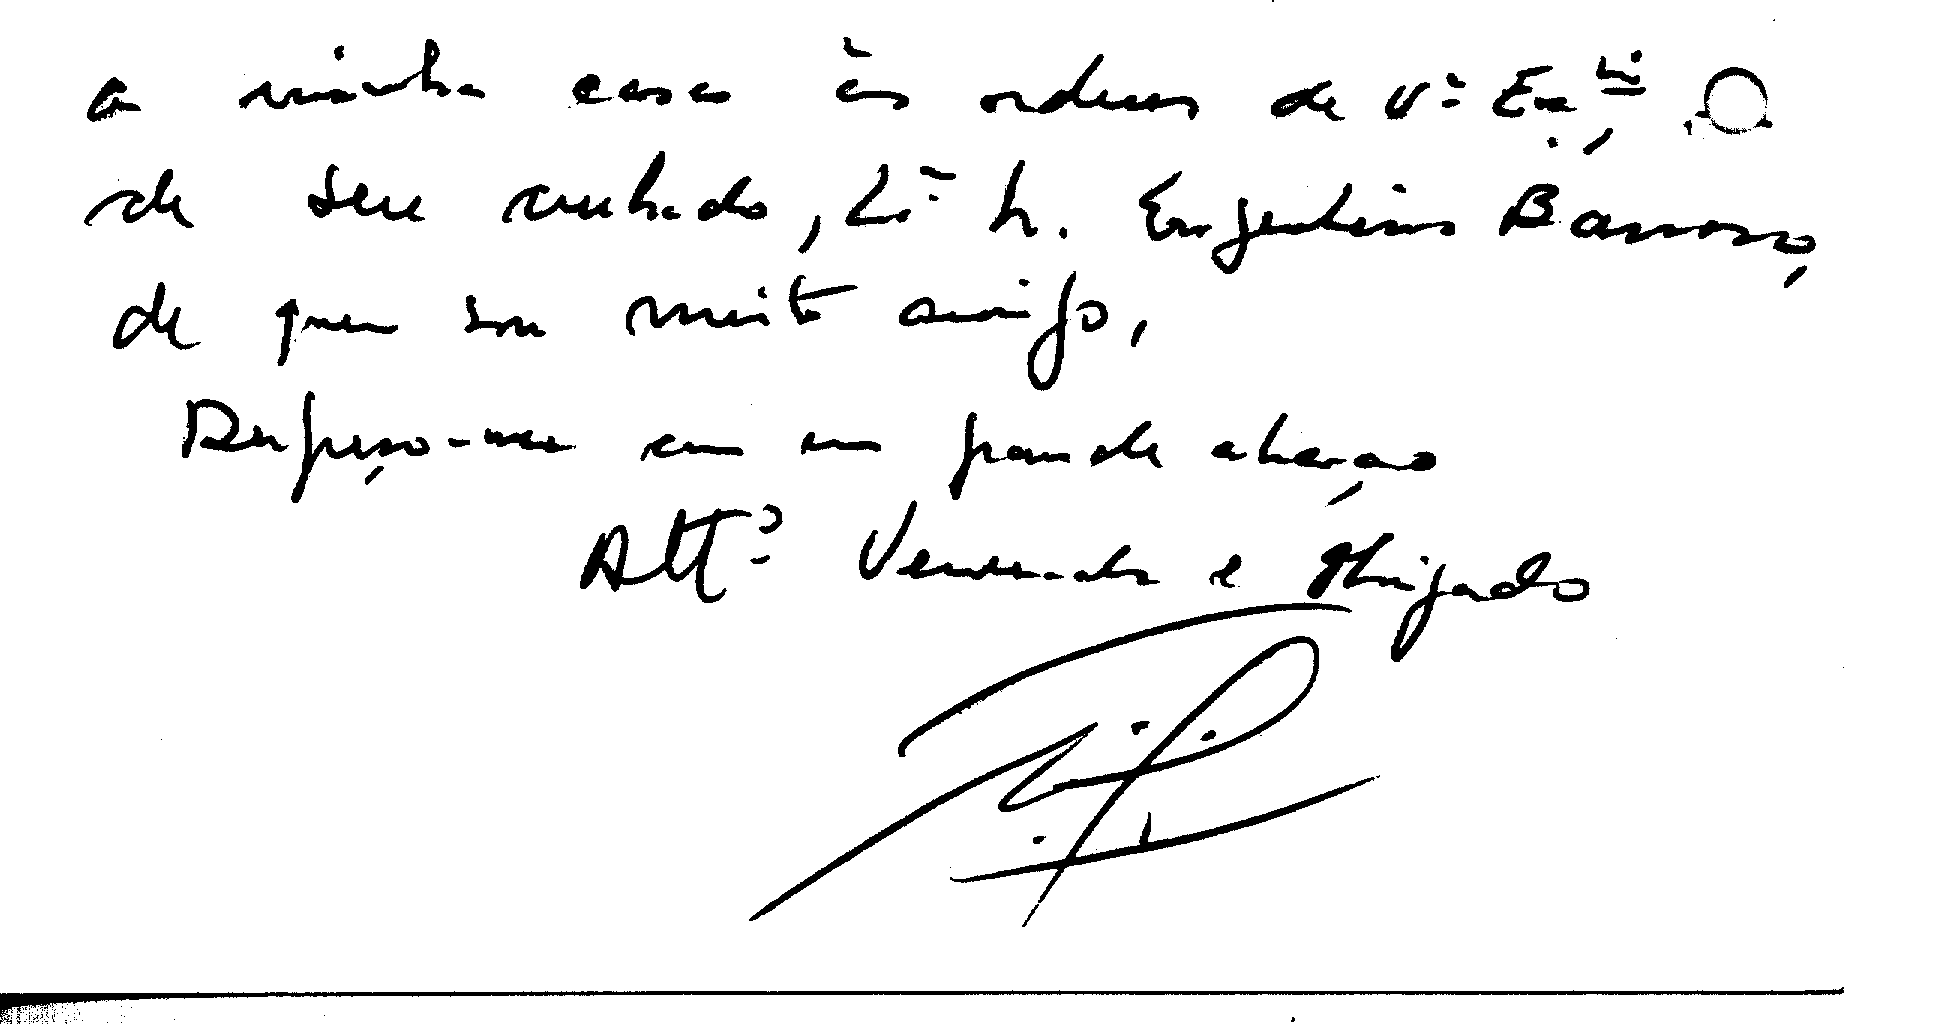 a minha casa às ordens de V.ª Ex.ᶜⁱᵃ,
de seu cunhado, Barroso,
de quem sou muito amigo,
Despeço-me com um grande abraço
Att.º Venerador e Obrigado